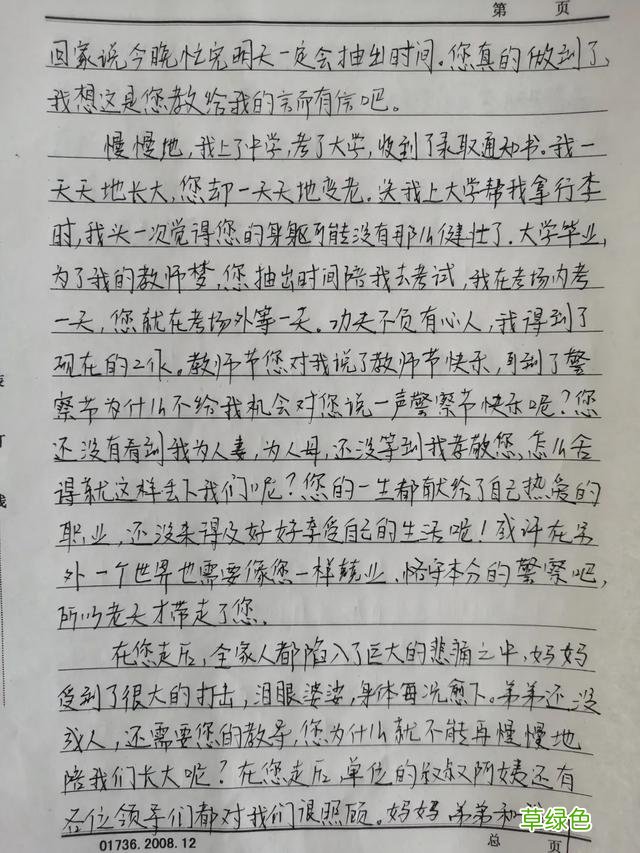 第 页
回家说今晚忙完明天一定会抽出时间。您真的做到了,
我想这是您教给我的言而有信吧。
慢慢地,我上了中学,考了大学,收到了录取通知书。我一
天天地长大,您却一天天地变老。送我上大学帮我拿行李
时,我头一次觉得您的身躯可能没有那么健壮了。大学毕业,
为了我的教师梦,您抽出时间陪我去考试,我在考场内考
一天,您就在考场外等一天。功夫不负有心人,我得到了
现在的工作。教师节您对我说了教师节快乐,可到了警
察节为什么不给我机会对您说一声警察节快乐呢?您
还没有看到我为人妻,为人母,还没等到我孝敬您,怎么舍
得就这样丢下我们呢?您的一生都献给了自己热爱的
职业,还没来得及好好享受自己的生活呢!或许在另
外一个世界也需要像您一样兢业、恪守本分的警察吧,
所以老天才带走了您。
在您走后,全家人都陷入了巨大的悲痛之中,妈妈
受到了很大的打击,泪眼婆娑,身体每况愈下。弟弟还没
成人,还需要您的教导,您为什么就不能再慢慢地
陪我们长大呢?在您走后,单位的叔叔阿姨还有
各位领导们都对我们很照顾。妈妈、弟弟和
草绿色
01736.2008.12 总 页